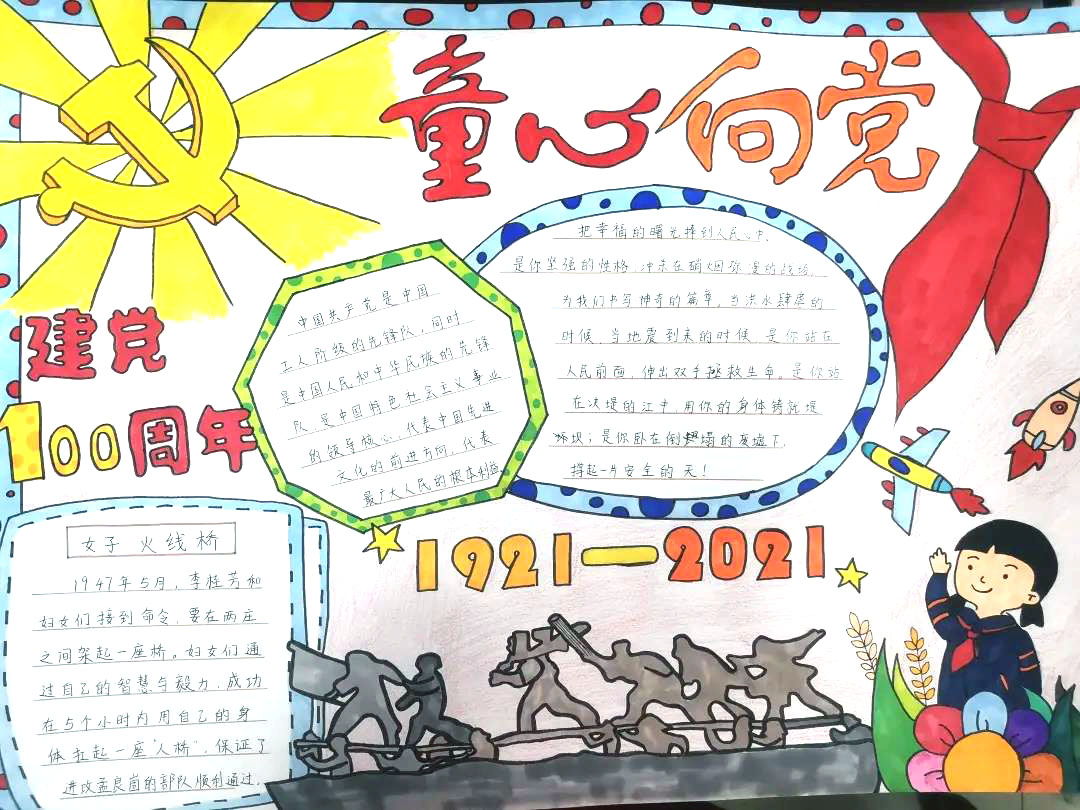 童心向党
建党
100周年
中国共产党是中国
工人阶级的先锋队,同时
是中国人民和中华民族的先锋
队,是中国特色社会主义事业
的领导核心,代表中国先进
文化的前进方向,代表
最广大人民的根本利益
把幸福的曙光捧到人民心中,
是你坚强的性格,冲杀在硝烟弥漫的战场,
为我们书写神奇的篇章。当洪水肆虐的
时候,当地震到来的时候,是你站在
人民前面,伸出双手拯救生命。是你站
在决堤的江中,用你的身体铸就堤
坝;是你卧在倒塌的废墟下,
撑起一片安全的天!
1921—2021
女子火线桥
1947年5月,李桂芳和
妇女们接到命令,要在两庄
之间架起一座桥。妇女们通
过自己的智慧与毅力,成功
在5个小时内用自己的身
体扛起一座"人桥",保证了
进攻孟良崮的部队顺利通过.